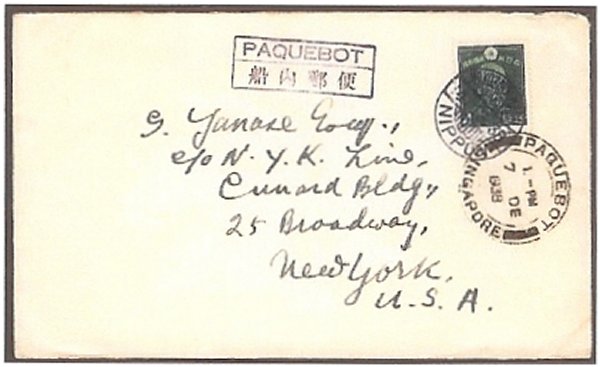 PAQUEBOT
船内郵便
S. Yanase Esqr.,
c/o N. Y. K. Line,
Cunard Bldg.,
25 Broadway,
New York,
U. S. A.
NIPPON
PAQUEBOT
1.-PM
7 DE
1938
SINGAPORE